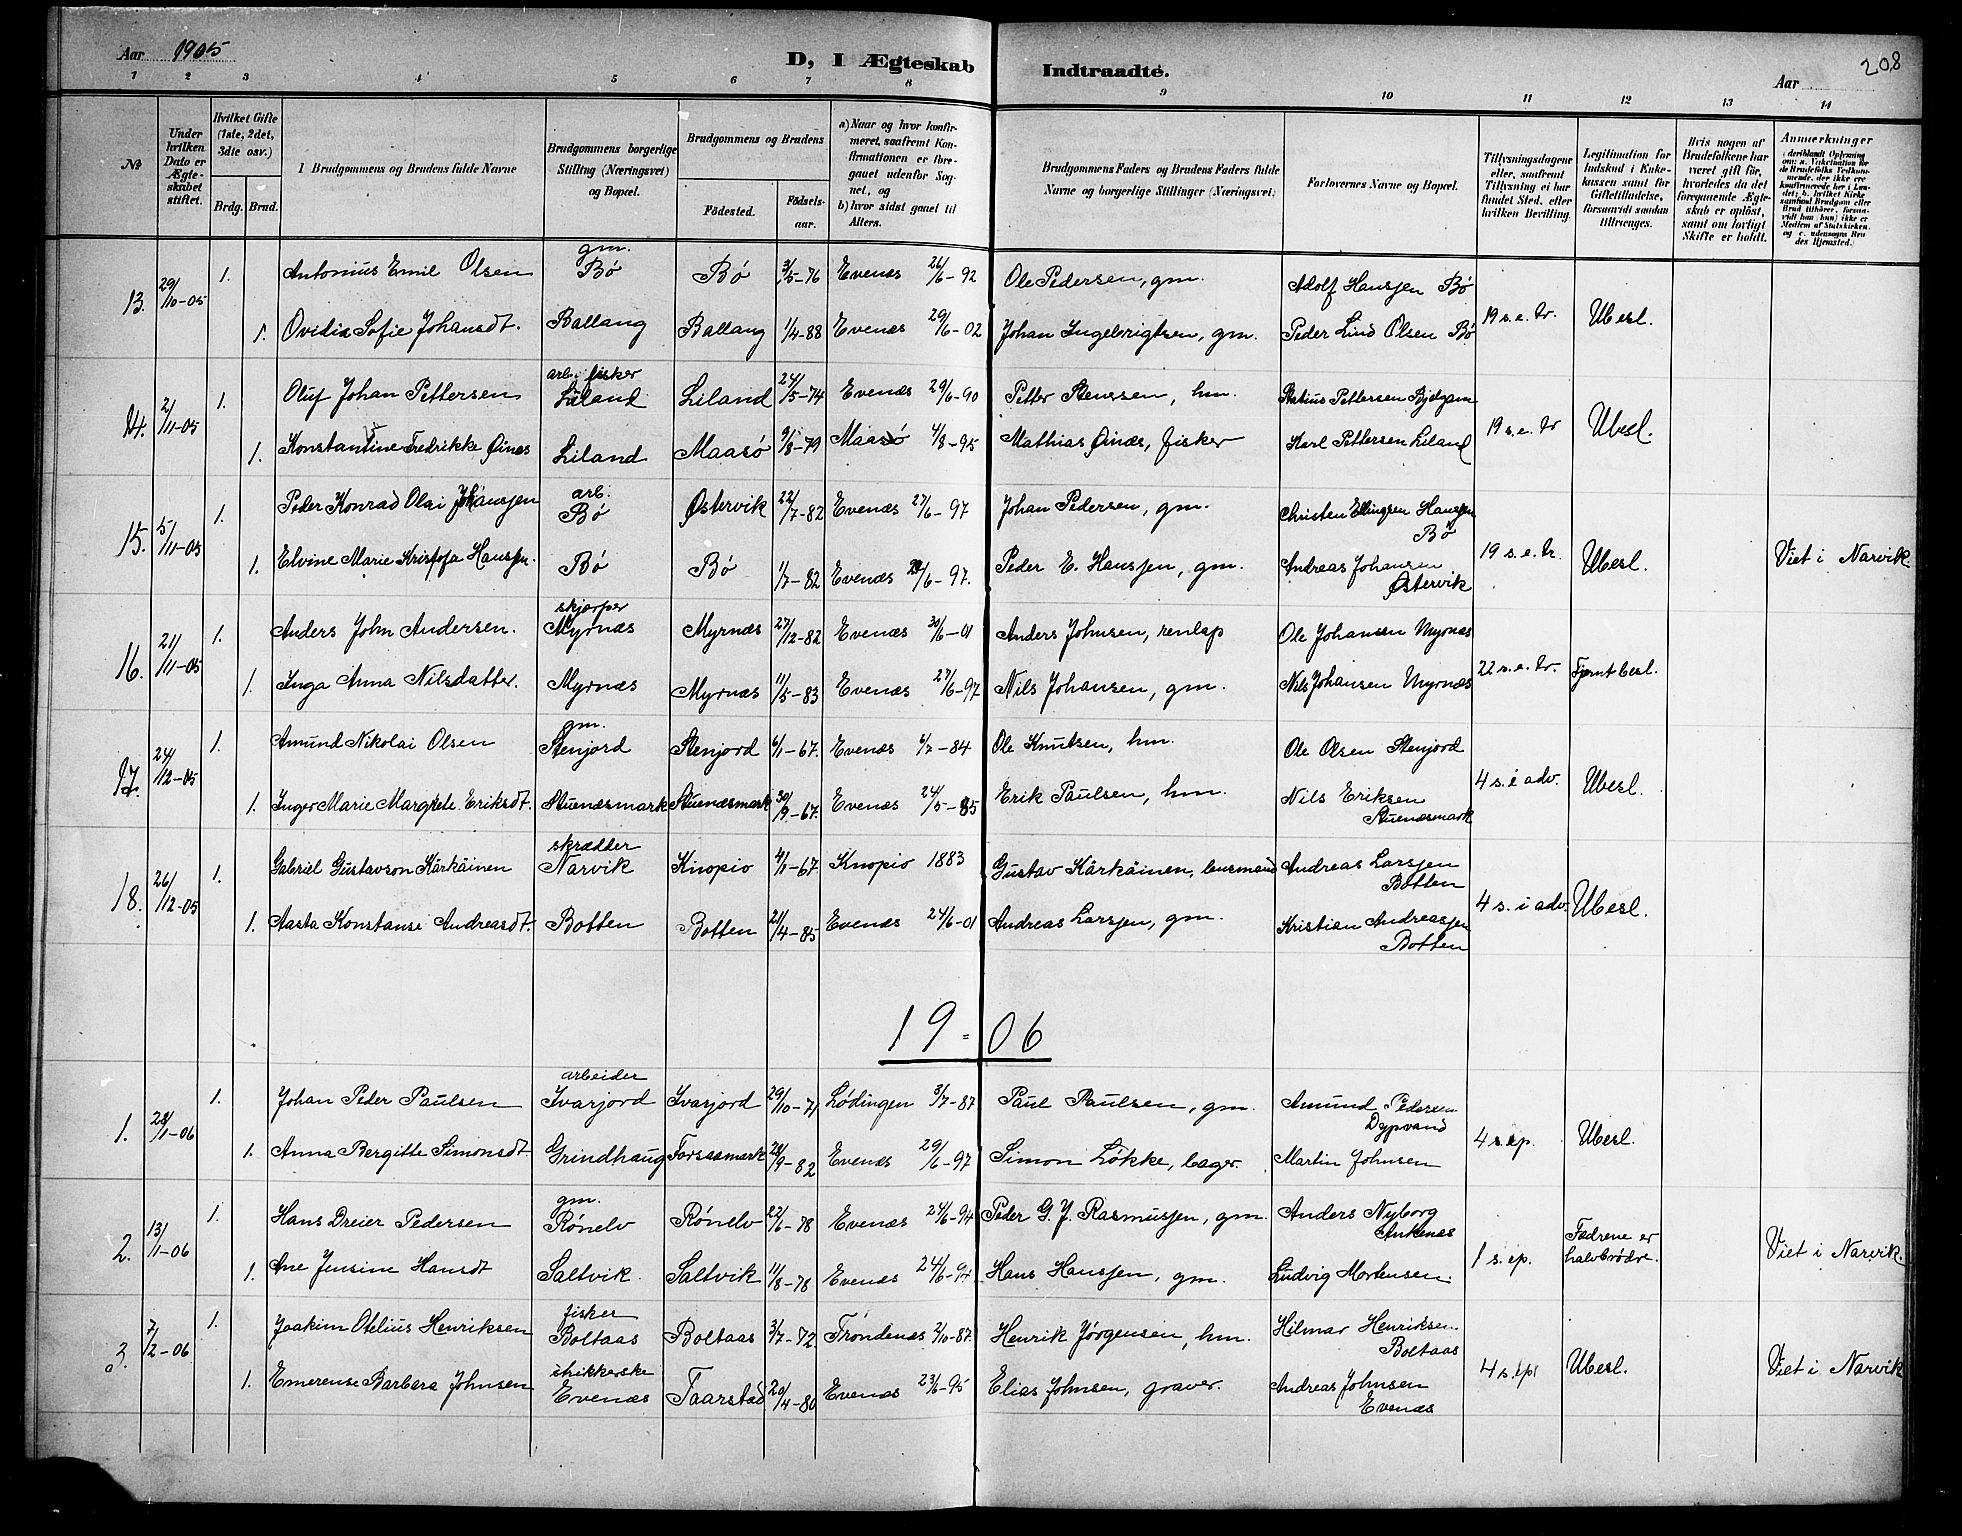 Aar 1905
D, I Ægteskab Indtraadte.
Aar
208
1 2 3 4 5 6 7 8 9 10 11 12 13 14
№
Under hvilken Dato er Ægteskabet stiftet.
Hvilket Gifte (1ste, 2det, 3die osv.)
Brdg. Brud.
1 Brudgommens og Brudens fulde Navne
Brudgommens borgerlige Stilling (Næringsvei) og Bopæl.
Brudgommens og Brudens
Fødested. Fødselsaar.
a) Naar og hvor konfirmeret, saafremt Konfirmationen er foregaaet udenfor Sognet, og
b) hvor sidst gaaet til Alters.
Brudgommens Faders og Brudens Faders fulde Navne og borgerlige Stillinger (Næringsvei)
Forlovernes Navne og Bopæl.
Tillysningsdagene eller, saafremt Tillysning ei har fundet Sted, efter hvilken Bevilling.
Legitimation for Indskud i Enkekassen samt for Giftetilladelse, forsaavidt saadan tiltrænges.
Hvis nogen af Brudefolkene har været gift før, hvorledes da det foregaaende Ægteskab er opløst, samt om lovligt Skifte er holdt.
Anmerkninger
13. 29/10-05 1. Antonius Emil Olsen gm. Bø Bø 3/5-76 Evenæs 26/6-92 Ole Pedersen, gm. Adolf Hansjen Bø
1. Ovidia Sofie Johansdt. Ballang Ballang 1/4-88 Evenæs 29/6-02 Johan Ingebrigtsen, gm. Peder Lind Olsen Bø 19 s.e. tr. Ubesl.
14. 2/11-05 1. Oluf Johan Pettersen arb. fisker Liland Liland 24/5-74 Evenæs 29/6-90 Petter Stenssen, hm. Pettersen
1. Konstantine Fredrikke Øinæs Liland Maasø 9/8-79 Maasø 4/8-95 Mathias Øinæs, fisker Karl Pettersen Liland 19 s.e. tr Ubesl.
15. 5/11-05 1. Peder Konrad Olai Johansjen arb. Bø Østervik 22/7-82 Evenæs 27/6-97 Johan Pedersen, gm. Christen Ellingsen Hansjen Bø
1. Elvine Marie Kristofa Hansjen. Bø Bø 1/7-82 Evenæs 28/6-97. Peder E. Hansjen, gm. Andreas Johansen Østervik 19 s.e. tr. Ubesl. Viet i Narvik.
16. 21/11-05 1. Anders John Andersen. skjærper Myrnæs Myrnæs 27/12-82 Evenæs 30/6-01 Anders Johnsen, renlap Ole Johansen Myrnæs
1. Inga Anna Nilsdatter. Myrnæs Myrnæs 11/5-83 Evenæs 27/6-97 Nils Johansen, gm. Nils Johansen Myrnæs 22 s.e. tr. besl.
17. 24/12-05 1. Amund Nikolai Olsen gm. Stenjord Stenjord 6/1-67. Evenæs 6/7-84 Ole Knutsen, hm. Ole Olsen Stenjord
1. Inger Marie Margrete Eriksdt. Stuenæsmark Stuenæsmark 30/9-67. Evenæs 24/5-85 Erik Paulsen, hm. Nils Eriksen Stuenæsmark 4 s. i adv. Ubesl.
18. 26/12-05 1. Gabriel Gustavson Kärkäinen skrædder Narvik Knopio 4/1-67 Knopio 1883 Gustav Kärkäinen, lensmand Andreas Larsjen Botten
1. Aasta Konstanse Andreasdt. Botten Botten 21/4-85 Evenæs 24/6-01 Andreas Larsjen, gm. Kristian Andreasjen Botten 4 s. i adv. Ubesl.
19-06
1. 28/1-06 1. Johan Peder Paulsen arbeider Ivarjord Ivarjord 29/10-71 Lødingen 3/7-87 Paul Paulsen, gm. Amund Pedersen Dypvand
1. Anna Bergitte Simonsdt Grindhaug Forsaamark 28/9-82 Evenæs 29/6-97 Simon Løkke, bager. Martin Johnsen 4 s. ep. Ubesl.
2. 13/1-06 1. Hans Dreier Pedersen gm. Rønelv Rønelv 22/6-78 Evenæs 24/6-94 Peder G. J. Rasmusjen, gm. Anders Nyborg Ankenæs
1. Ane Jensine Hansdt Saltvik. Saltvik 11/8-78 Evenæs 24/6-94 Hans Hansjen, gm. Ludvig Mortensen. 1 s. ep. Fædrene er halvbrødre. Viet i Narvik.
3. 7/2-06 1. Joakim Otelius Henriksen fisker Boltaas Boltaas 3/7-72. Trondenæs 2/10-87. Henrik Jørgensen, hm. Hilmar Henriksen. Boltaas
1. Emerense Barbara Johnsen strikkerske Evenæs Taarstad 20/4-80 Evenæs 23/6-95 Elias Johnsen, graver. Andreas Johnsen Evenæs 4 s. ep. Ubesl. Viet i Narvik